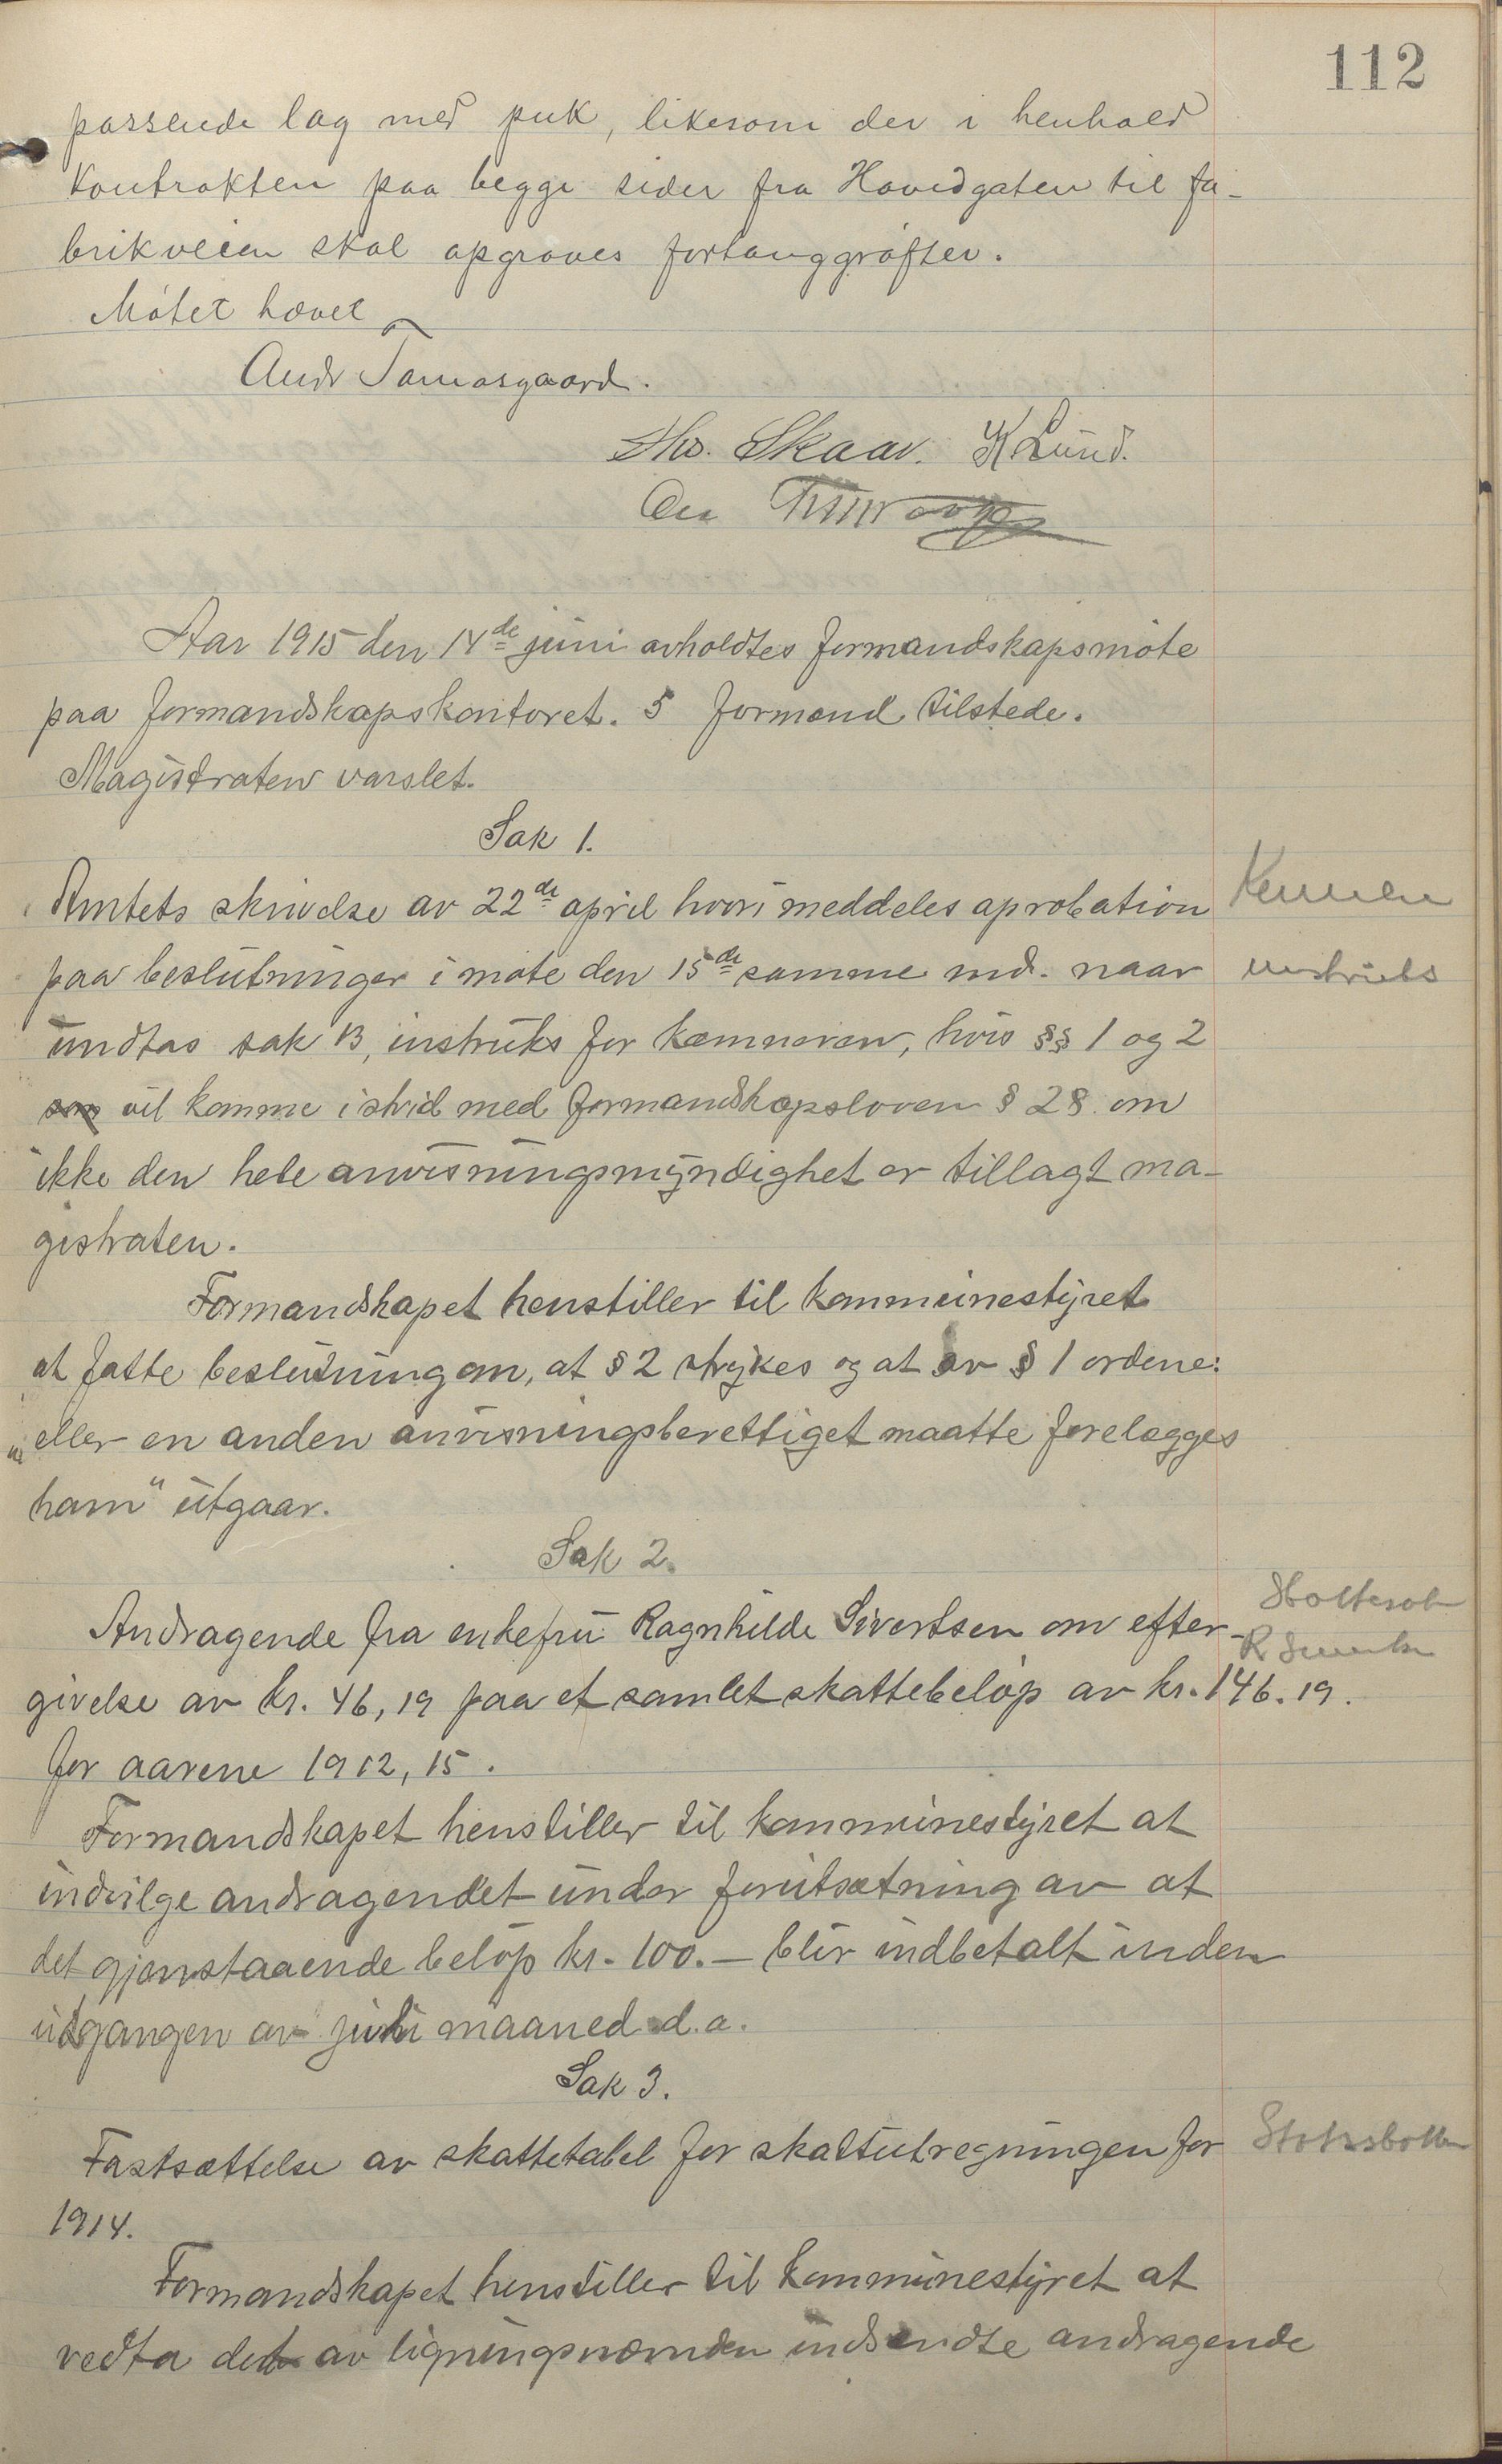 112
passende lag med puk, likesom der i henhold
Kontrakten paa begge sider fra Hovedgaten til fa-
brikveien skal opgraves fortauggrøfter.
Møtet hævet
Andr Tomasgaard.
Skaar. K Lund.
Aar 1915 den 14de juni avholdtes formandskapsmøte
paa formandskapskontoret. 5 formænd tilstede.
Magistraten varslet.
Sak 1.
Amtets skrivelse av 22de april hvori meddeles aprobation
paa beslutninger i møte den 15de samme md. naar
undtas sak 13, instruks for kæmneren, hvis §§ 1 og 2
som vil komme i strid med formandskapsloven § 28 om
ikke den hele anvisningsmyndighet er tillagt ma-
gistraten.
Formandskapet henstiller til kommunestyret
at fatte beslutning om, at § 2 strykes og at av § 1 ordene:
„eller en anden anvisningsberettiget maatte forelægges
ham" utgaar.
Sak 2.
Andragende fra enkefru Ragnhilde Sivertsen om efter-
givelse av kr. 46,19 paa et samlet skattebeløp av kr. 146.19.
for aarene 1912, 15.
Formandskapet henstiller til kommunestyret at
indvilge andragendet under forutsætning av at
det gjenstaaende beløp kr. 100.— blir indbetalt inden
utgangen av juli maaned d.a.
Sak 3.
Fastsættelse av skattetabel for skatutregningen for
1914.
Formandskapet henstiller til kommunestyret at
vedta det av ligningsnævnden indsendte andragende